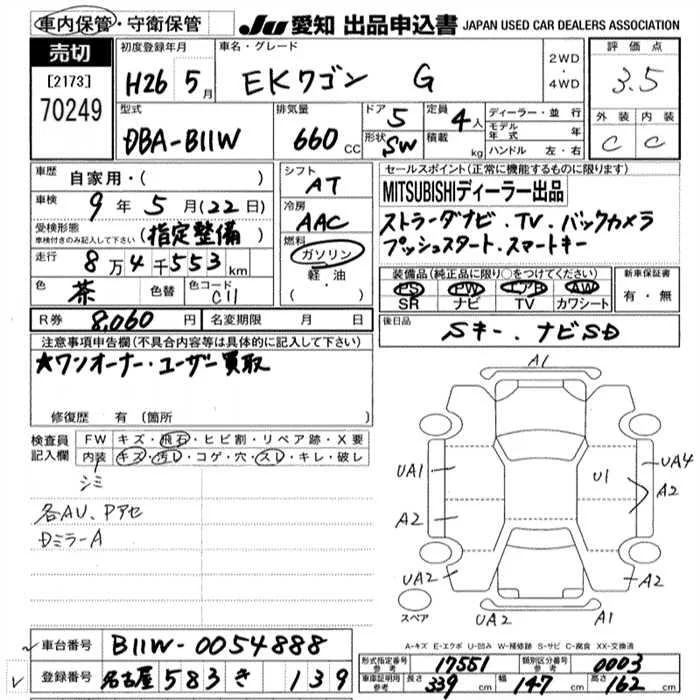 車内保管・守衛保管 JU 愛知 出品申込書 JAPAN USED CAR DEALERS ASSOCIATION
売切
[2173]
70249
初度登録年月 車名・グレード 2WD・4WD 評価点
H26 5月 EKワゴン G 3.5
型式 排気量 ドア 5 定員 4人 ディーラー・並行 外装 内装
DBA-B11W 660 CC 形状 SW 積載 kg モデル年式 年 C C
ハンドル 左・右
車歴 自家用・( )
車検 9年 5月(22日)
受検形態 車検付きのみ記入して下さい (指定整備)
走行 8万4千553km
色 茶 色替 色コード C11
R券 8,060円 名変期限 月 日
シフト AT
冷房 AAC
燃料 ガソリン
軽油
・( )
セールスポイント(正常に機能するものに限ります)
MITSUBISHIディーラー出品
ストラーダナビ.TV.バックカメラ
プッシュスタート.スマートキー
装備品(純正品に限り○をつけてください) 新車保証書
PS PW エアB AW 有・無
SR ナビ TV カワシート
後日品 Sキー.ナビSD
注意事項申告欄(不具合内容等は具体的に記入して下さい)
★ワンオーナー・ユーザー買取
修復歴 有(箇所
検査員記入欄 FW キズ・飛石・ヒビ割・リペア跡・X要
内装 キズ・汚レ・コゲ・穴・スレ・キレ・破レ
シミ
各AU、Pアセ
DミラーA
A1
UA1 U1 UA4
A2 A2
UA2 A2
スペア UA2 A1
A-キズ E-エクボ U-凹み W-補修跡 S-サビ C-腐食 XX-交換済
車台番号 B11W-0054888
登録番号 名古屋 583 き 139
形式指定番号参考 17551 類別区分番号参考 0003
車庫証明用参考 長さ 339cm 幅 147cm 高さ 162cm